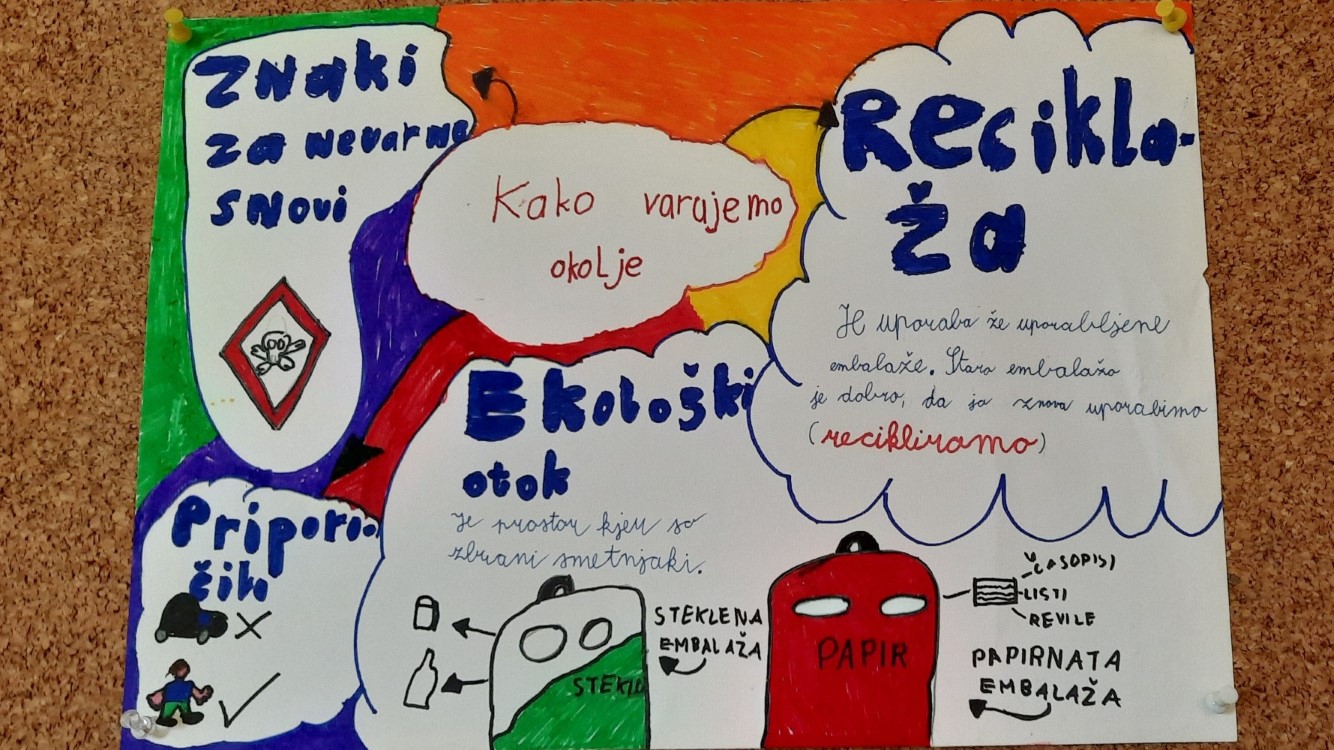 Znaki
za nevarne
snovi
Kako varujemo
okolje
Recikla-
ža
Je uporaba že uporabljene
embalaže. Staro embalažo
je dobro, da jo znova uporabimo
(recikliramo)
Ekološki
otok
Je prostor kjer so
zbrani smetnjaki.
Priporo-
čilo
STEKLENA
EMBALAŽA
STEKLO
PAPIR
ČASOPISI
LISTI
REVILE
PAPIRNATA
EMBALAŽA